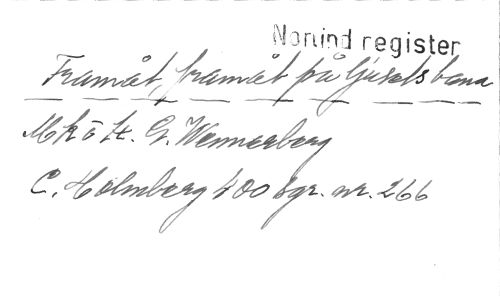 Nonind register
Framåt, framåt på ljusets bana
Mkö lt. G. Wennerberg
C. Holmberg 400 sgr. nr. 266